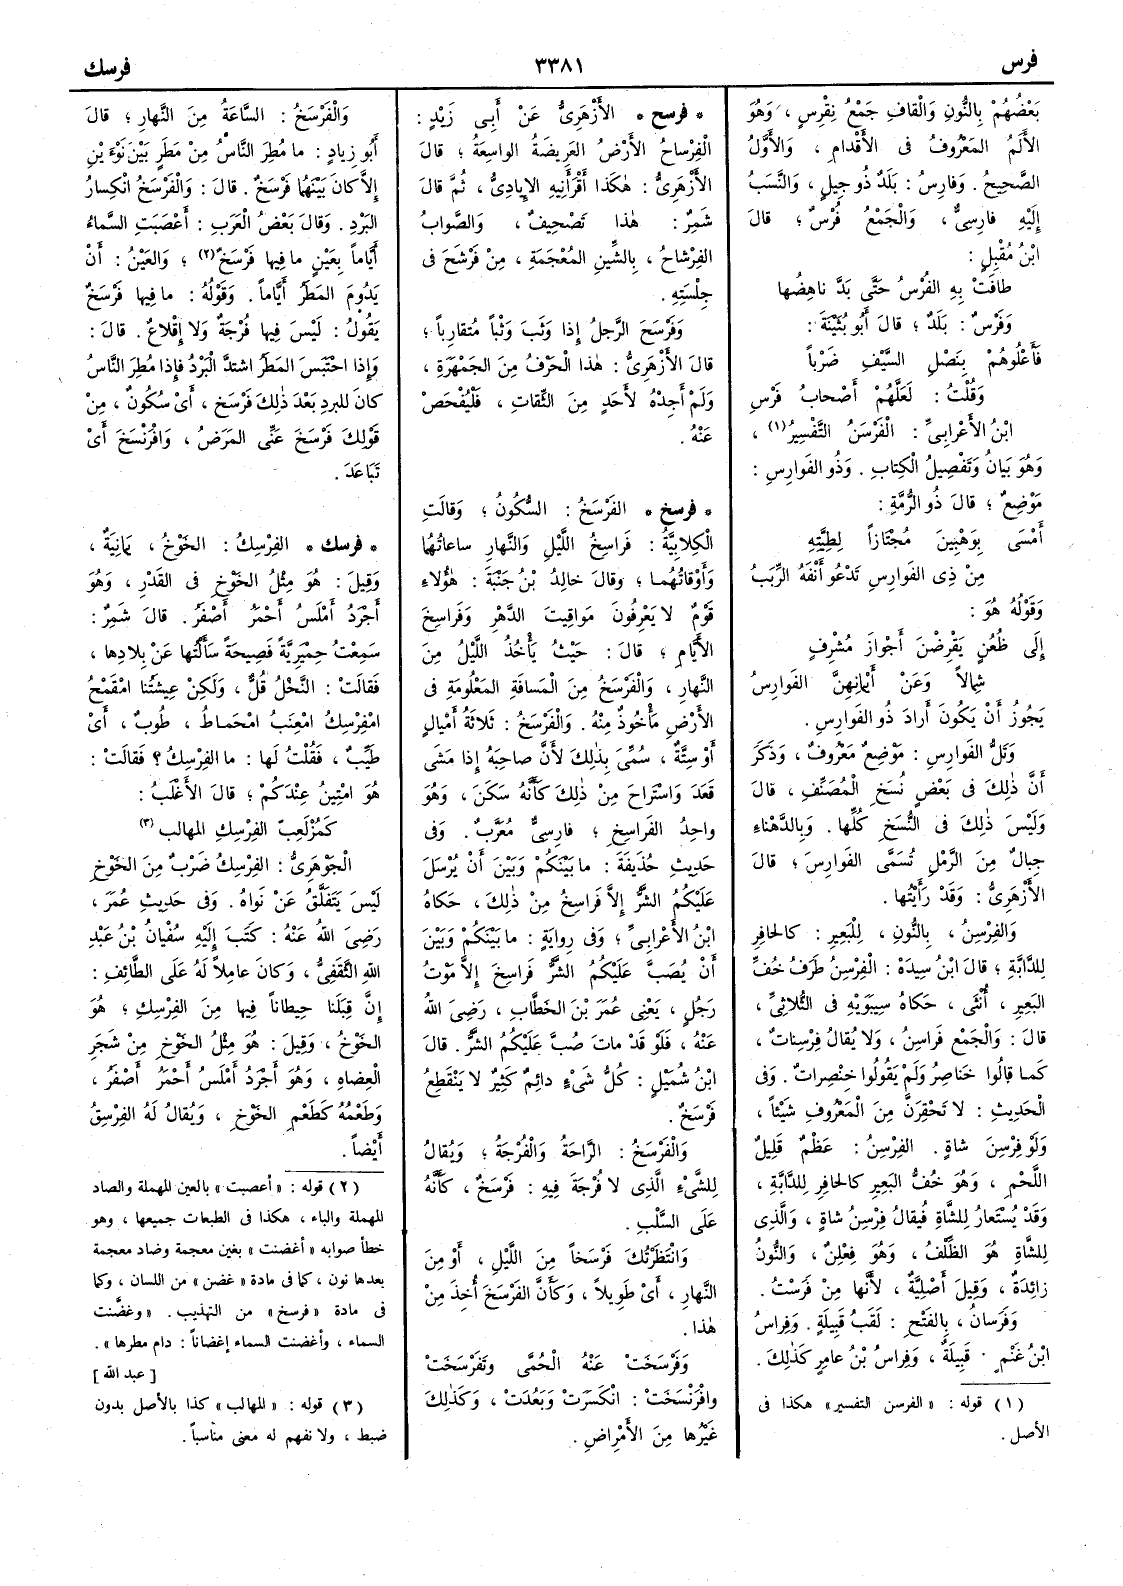 فرس
٣٣٨١
فرسك
بَعْضُهُمْ بِالنُّونِ وَالْقافِ جَمْعُ نِقْرِسٍ ، وَهُوَ
الأَلَمُ المَعْرُوفُ فِى الأَقْدامِ ، وَالأَوَّلُ
الصَّحِيحُ . وَفارِسُ : بَلَدٌ ذُو جِيلٍ ، وَالنَّسَبُ
إِلَيْهِ فارِسِىٌّ ، وَالْجَمْعُ فُرْسٌ ؛ قالَ
ابْنُ مُقْبِلٍ :
طافَتْ بِهِ الفُرْسُ حَتَّى بَدَّ ناهِضُها
وَفَرْسٌ : بَلَدٌ ؛ قالَ أَبُو بُثَيْنَةَ :
فَأَعْلُوهُمْ بِنَصْلِ السَّيْفِ ضَرْباً
وَقُلْتُ : لَعَلَّهُمْ أَصْحابُ فَرْسِ
ابْنُ الأَعْرابِىِّ : الْفَرْسَنُ التَّفْسِيرُ(١) ،
وَهُوَ بَيانُ وَتَفْصِيلُ الْكِتابِ . وَذُو الفَوارِسِ :
مَوْضِعٌ ؛ قالَ ذُو الرُّمَّةِ :
أَمْسَى بِوَهْبِينَ مُجْتازاً لِطِيَّتِهِ
مِنْ ذِى الفَوارِسِ تَدْعُو أَنْفَهُ الرِّبَبُ
وَقَوْلُهُ هُوَ :
إِلَى ظُعُنٍ يَقْرِضْنَ أَجْوازَ مُشْرِفٍ
شِمالاً وَعَنْ أَيْمانِهِنَّ الفَوارِسُ
يَجُوزُ أَنْ يَكُونَ أَرادَ ذُو الفَوارِسِ .
وَتَلُّ الفَوارِسِ : مَوْضِعٌ مَعْرُوفٌ ، وَذَكَرَ
أَنَّ ذٰلِكَ فِى بَعْضِ نُسَخِ الْمُصَنِّفِ ، قالَ
وَلَيْسَ ذٰلِكَ فِى النُّسَخِ كُلِّها . وَبِالدَّهْناءِ
جِبالٌ مِنَ الرَّمْلِ تُسَمَّى الفَوارِسَ ؛ قالَ
الأَزْهَرِىُّ : وَقَدْ رَأَيْتُها .
وَالفِرْسِنُ ، بِالنُّونِ ، لِلْبَعِيرِ : كالحافِرِ
لِلدَّابَّةِ ؛ قالَ ابْنُ سِيدَهْ : الْفِرْسِنُ طَرَفُ خُفِّ
البَعِيرِ ، أُنْثَى ، حَكاهُ سِيبَوَيْهِ فِى الثُّلاثِىِّ ،
قالَ : وَالْجَمْعُ فَراسِنُ ، وَلا يُقالُ فِرْسِنات ،
كَمـا قالُوا خَناصِرُ وَلَمْ يَقُولُوا خِنْصِرات . وَفِى
الْحَدِيثِ : لا تَحْقِرَنَّ مِنَ الْمَعْرُوفِ شَيْئاً ،
وَلَوْ فِرْسِنَ شاةٍ . الفِرْسِنُ : عَظْمٌ قَلِيلُ
اللَّحْمِ ، وَهُوَ خُفُّ البَعِيرِ كالحافِرِ لِلدَّابَّةِ ،
وَقَدْ يُسْتَعارُ لِلشَّاةِ فَيُقالُ فِرْسِنُ شاةٍ ، وَالَّذِى
لِلشَّاةِ هُوَ الظِّلْفُ ، وَهُوَ فِعْلِنٌ ، وَالنُّونُ
زائِدَةٌ ، وَقِيلَ أَصْلِيَّةٌ ، لأَنَّها مِنْ فَرَسْتُ .
وَفَرَسانُ ، بِالفَتْحِ : لَقَبُ قَبِيلَةٍ . وَفِراسُ
ابْنُ غَنْمٍ : قَبِيلَةٌ ، وَفِراسُ بْنُ عامِرٍ كَذٰلِكَ .
(١) قوله : «الفرسن التفسير» هكذا فى
الأصل .
* فرسح * الأَزْهَرِىُّ عَنْ أَبِى زَيْدٍ :
الْفِرْساحُ الأَرْضُ العَرِيضَةُ الواسِعَةُ ؛ قالَ
الأَزْهَرِىُّ : هٰكَذا أَقْرَأَنِيهِ الإِيادِىُّ ، ثُمَّ قالَ
شَمِرٌ : هٰذا تَصْحِيفٌ ، وَالصَّوابُ
الفِرْشاحُ ، بِالشِّينِ المُعْجَمَةِ ، مِنْ فَرْشَحَ فِى
جِلْسَتِهِ .
وَفَرْسَحَ الرَّجلُ إِذا وَثَبَ وَثْباً مُتَقارِباً ؛
قالَ الأَزْهَرِىُّ : هٰذا الْحَرْفُ مِنَ الجَمْهَرَةِ ،
وَلَمْ أَجِدْهُ لأَحَدٍ مِنَ الثِّقاتِ ، فَلْيُفْحَصْ
عَنْهُ .
* فرسخ * الفَرْسَخُ : السُّكُونُ ؛ وَقالَتِ
الْكِلابِيَّةُ : فَراسِخُ اللَّيْلِ وَالنَّهارِ ساعاتُهُما
وَأَوْقاتُهُما ؛ وَقالَ خالِدُ بْنُ جَنْبَةَ : هٰؤُلاءِ
قَوْمٌ لا يَعْرِفُونَ مَواقِيتَ الدَّهْرِ وَفَراسِخَ
الأَيَّامِ ؛ قالَ : حَيْثُ يَأْخُذُ اللَّيْلُ مِنَ
النَّهارِ ، وَالْفَرْسَخُ مِنَ المَسافَةِ المَعْلُومَةِ فِى
الأَرْضِ مَأْخُوذٌ مِنْهُ . وَالْفَرْسَخُ : ثَلاثَةُ أَمْيالٍ
أَوْ سِتَّةٌ ، سُمِّىَ بِذٰلِكَ لأَنَّ صاحِبَهُ إِذا مَشَى
قَعَدَ وَاسْتَراحَ مِنْ ذٰلِكَ كَأَنَّهُ سَكَنَ ، وَهُوَ
واحِدُ الفَراسِخِ ؛ فارِسِىٌّ مُعَرَّبٌ . وَفِى
حَدِيثِ حُذَيْفَةَ : ما بَيْنَكُمْ وَبَيْنَ أَنْ يُرْسَلَ
عَلَيْكُمُ الشَّرُّ إِلاَّ فَراسِخُ مِنْ ذٰلِكَ ، حَكاهُ
ابْنُ الأَعْرابِىِّ ؛ وَفِى رِوايَةٍ : ما بَيْنَكُمْ وَبَيْنَ
أَنْ يُصَبَّ عَلَيْكُمُ الشَّرُّ فَراسِخَ إِلاَّ مَوْتُ
رَجُلٍ ، يَعْنِى عُمَرَ بْنَ الخَطَّابِ ، رَضِىَ اللهُ
عَنْهُ ، فَلَوْ قَدْ ماتَ صُبَّ عَلَيْكُمُ الشَّرُّ . قالَ
ابْنُ شُمَيْلٍ : كُلُّ شَىْءٍ دائِمٌ كَثِيرٌ لا يَنْقَطِعُ
فَرْسَخٌ .
وَالْفَرْسَخُ : الرَّاحَةُ وَالْفُرْجَةُ ؛ وَيُقالُ
لِلشَّىْءِ الَّذِى لا فُرْجَةَ فِيهِ : فَرْسَخٌ ، كَأَنَّهُ
عَلَى السَّلْبِ .
وَانْتَظَرْتُكَ فَرْسَخاً مِنَ اللَّيْلِ ، أَوْ مِنَ
النَّهارِ ، أَىْ طَوِيلاً ، وَكَأَنَّ الفَرْسَخَ أُخِذَ مِنْ
هٰذا .
وَفَرْسَخَتْ عَنْهُ الْحُمَّى وَتَفَرْسَخَتْ
وافْرَنْسَخَتْ : انْكَسَرَتْ وَبَعُدَتْ ، وَكَذٰلِكَ
غَيْرُها مِنَ الأَمْراضِ .
وَالْفَرْسَخُ : السَّاعَةُ مِنَ النَّهارِ ؛ قالَ
أَبُو زِيادٍ : ما مُطِرَ النَّاسُ مِنْ مَطَرٍ بَيْنَ نَوْءَيْنِ
إِلاَّ كانَ بَيْنَهُما فَرْسَخٌ . قالَ : وَالْفَرْسَخُ انْكِسارُ
البَرْدِ . وَقالَ بَعْضُ الْعَرَبِ : أَعْصَبَتِ السَّماءُ
أَيَّاماً بِعَيْنٍ ما فِيها فَرْسَخٌ(٢) ؛ وَالعَيْنُ : أَنْ
يَدُومَ المَطَرُ أَيَّاماً . وَقَوْلُهُ : ما فِيها فَرْسَخٌ
يَقُولُ : لَيْسَ فِيها فُرْجَةٌ وَلا إِقْلاعٌ . قالَ :
وَإِذا احْتَبَسَ المَطَرُ اشتدَّ البَرْدُ فإذا مُطِرَ النَّاسُ
كانَ للبردِ بَعْدَ ذٰلِكَ فَرْسَخ ، أَىْ سُكُونٌ ، مِنْ
قَوْلِكَ فَرْسَخَ عَنِّى المَرَضُ ، وَافْرَنْسَخَ أَىْ
تَبَاعَدَ .
* فرسك * الفِرْسِكُ : الخَوْخُ ، يَمانِيَةٌ ،
وَقِيلَ : هُوَ مِثْلُ الخَوْخِ فِى القَدْرِ ، وَهُوَ
أَجْرَدُ أَمْلَسُ أَحْمَرُ أَصْفَرُ . قالَ شَمِرٌ :
سَمِعْتُ حِمْيَرِيَّةً فَصِيحَةً سَأَلْتُها عَنْ بِلادِها ،
فَقالَتْ : النَّخْلُ قُلٌّ ، وَلَكِنْ عِيشَتُنا امْقَمْحُ
امْفِرْسِكُ امْعِنَبُ امْحَماطُ ، طُوبٌ ، أَىْ
طَيِّبٌ ، فَقُلْتُ لَها : ما الفِرْسِكُ ؟ فَقالَتْ :
هُوَ امْتِينُ عِنْدَكُمْ ؛ قالَ الأَغْلَبُ :
كَمُزْلَعِبِّ الفِرْسِكِ المهالب (٣)
الْجَوْهَرِىُّ : الفِرْسِكُ ضَرْبٌ مِنَ الخَوْخِ
لَيْسَ يَتَفَلَّقُ عَنْ نَواهُ . وَفِى حَدِيثِ عُمَرَ ،
رَضِىَ اللهُ عَنْهُ : كَتَبَ إِلَيْهِ سُفْيانُ بْنُ عَبْدِ
اللهِ الثَّقَفِىُّ ، وَكانَ عامِلاً لَهُ عَلَى الطَّائِفِ :
إِنَّ قِبَلَنا حِيطاناً فِيها مِنَ الفِرْسِكِ ؛ هُوَ
الخَوْخُ ، وَقِيلَ : هُوَ مِثْلُ الخَوْخِ مِنْ شَجَرِ
الْعِضاهِ ، وَهُوَ أَجْرَدُ أَمْلَسُ أَحْمَرُ أَصْفَرُ ،
وَطَعْمُهُ كَطَعْمِ الخَوْخِ ، وَيُقالُ لَهُ الفِرْسِقُ
أَيْضاً .
(٢) قوله : «أعصبت» بالعين المهملة والصاد
المهملة والباء ، هكذا فى الطبعات جميعها ، وهو
خطأ صوابه «أغضنت» بغين معجمة وضاد معجمة
بعدها نون ، كما فى مادة «غضن» من اللسان ، وكما
فى مادة «فرسخ» من التهذيب . «وغضَّنت
السماء ، وأغضنت السماء إغضاناً : دام مطرها» .
[ عبد الله ]
(٣) قوله : «المهالب» كذا بالأصل بدون
ضبط ، ولا نفهم له معنى مناسباً .